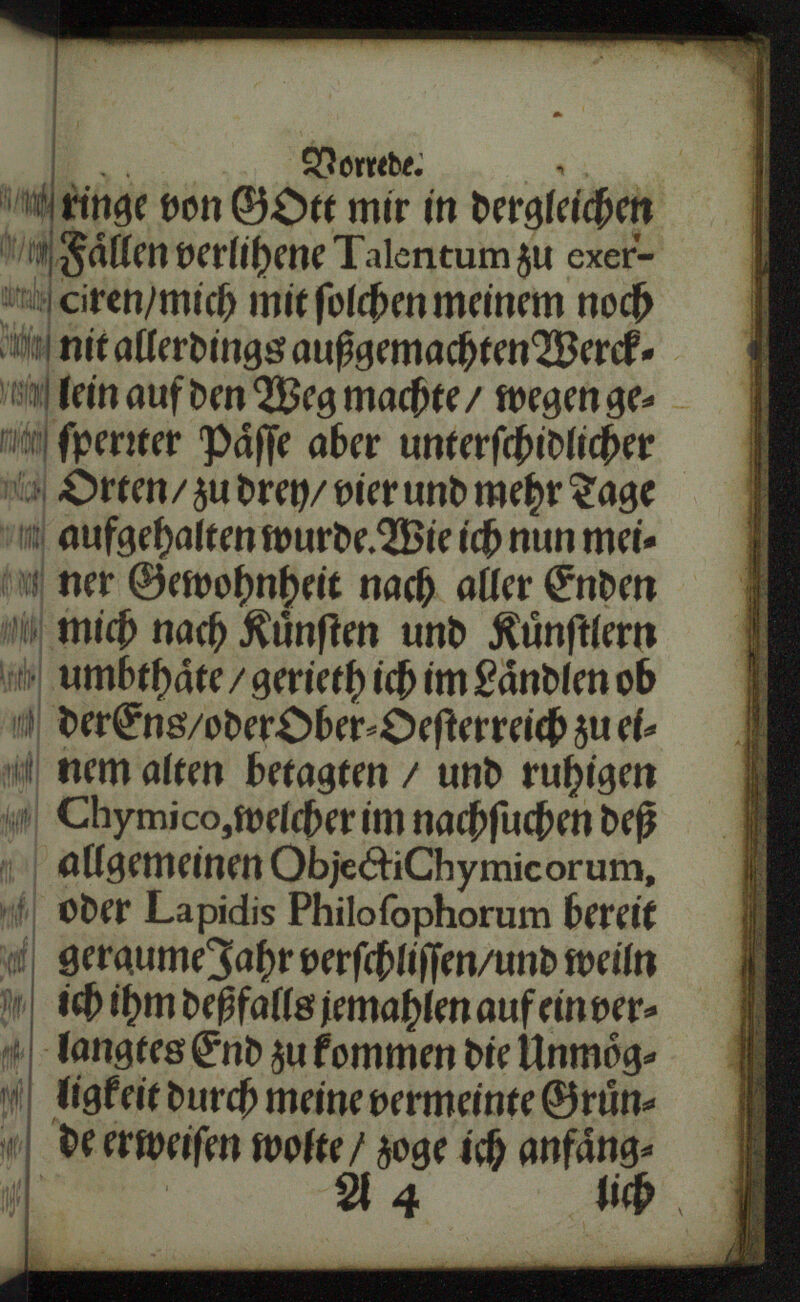 Vorrede.
ringe von GOtt mir in dergleichen
Faͤllen verlihene Talentum zu exer-
ciren/mich mit ſolchen meinem noch
nit allerdings außgemachten Werck⸗
lein auf den Weg machte / wegen ge⸗
ſperꝛter Paͤſſe aber unterſchidlicher
Orten/ zu drey/ vier und mehr Tage
aufgehalten wurde. Wie ich nun mei⸗
ner Gewohnheit nach aller Enden
mich nach Kuͤnſten und Kuͤnſtlern
umbthaͤte / gerieth ich im Laͤndlen ob
der Ens/oder Ober⸗Oeſterreich zu ei⸗
nem alten betagten / und ruhigen
Chymico, welcher im nachſuchen deß
allgemeinen Objecti Chymicorum,
oder Lapidis Philoſophorum bereit
geraume Jahr verſchliſſen/und weiln
ich ihm deßfalls jemahlen auf ein ver⸗
langtes End zu kommen die Unmoͤg⸗
ligkeit durch meine vermeinte Gruͤn⸗
de erweiſen wolte / zoge ich anfaͤng⸗
A 4 lich